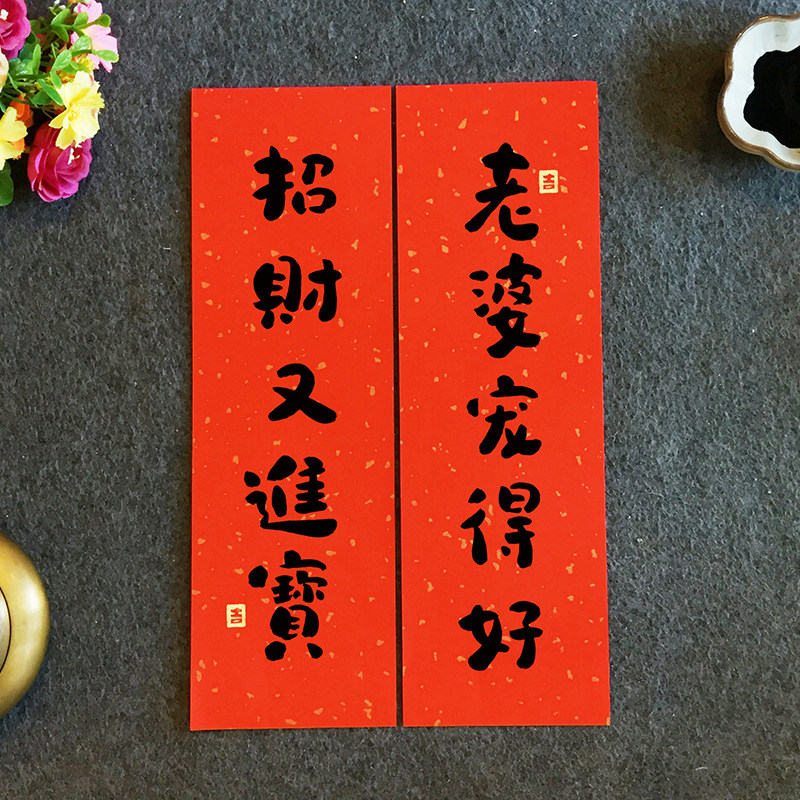 老婆宠得好
吉
招財又進寶
吉